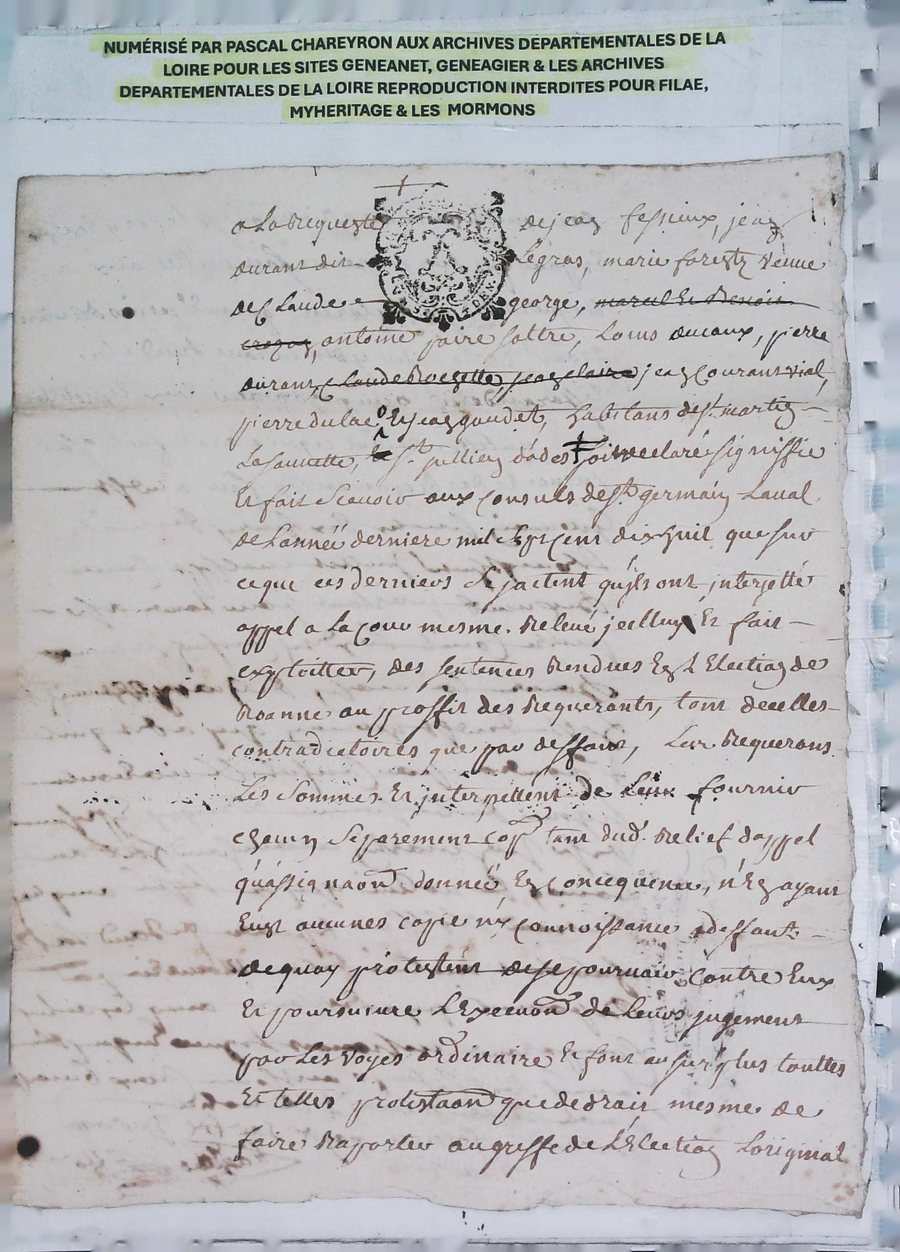 NUMÉRISÉ PAR PASCAL CHAREYRON AUX ARCHIVES DEPARTEMENTALES DE LA
LOIRE POUR LES SITES GENEANET, GENEAGIER & LES ARCHIVES
DEPARTEMENTALES DE LA LOIRE REPRODUCTION INTERDITES POUR FILAE,
MYHERITAGE & LES MORMONS
a La Requeste de jean fessieux, jean
durant dit Legros, marie forestz veuve
de Claude george, marcel Et Benoit
crozon, antoine faire sottre, Louis ducaux, pierre
durant, Claude Rozette, jean claire jean Courant vial,
pierre dulac Et jean gaudet, habitans de st. martin
La sauvette, st. jullien d'odes soit declaré signiffie
Et fait scavoir aux consuls de st. germain Laval
de L'année derniere mil sept cent dix huit que sur
ce que ces derniers se jactent qu'ils ont interjetté
appel a La cour mesme Relevé jcelluy Et fait
exploitter, des sentences Rendues En L'Election de
Roanne au proffit des Requerants, tant de celles
contradictoires que par deffaut, Les Requerans
Les Somment Et interpellent de Leur fournir
chacun Separement Cope tant dud. Relief d'appel
qu'assignaon donnée En Concequence, n'En ayant
Eust aucunes copie ny Connoissance a deffaut
de quoy protestent de se pourvoir Contre Eux
Et poursuivre L'Execuon de Leurs jugement
par Les Voyes ordinaire Et font au surplus touttes
Et telles protestaon que de droit mesme de
faire Raporter au greffe de L'Election L'original